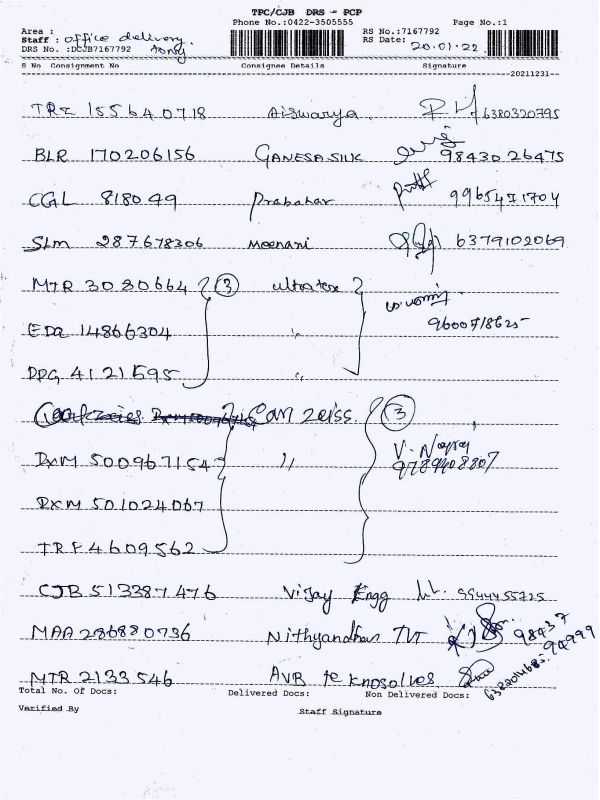 TPC/CJB DRS - PCP
Phone No.:0422-3505555 Page No.:1
Area :
Staff : office delivery
DRS No. :DCJB7167792
RS No.:7167792
RS Date: 20.01.22
S No Consignment No Consignee Details Signature
20211231
TRZ 155640718 Aiswarya 6380320795
BLR 170206156 GANESA SILK 98430 26475
CGL 818049 Prabahar 9965471704
SLM 287678306 Meenani 6379102069
MTR 3080664 3 ultratex
9600718625
EDR 14866304 "
PPG 4121595 "
Carl Zeiss. 3
DXM 500967154 "
V. 
9789408807
DXM 501024067
TRP 4609562
CJB 513387476 Vijay Engg 9944455725
MAA 286880736 Nithyandhan TVT 98437 94999
MTR 2133546 AVB
Total No. Of Docs: Delivered Docs: Non Delivered Docs:
Verified By Staff Signature